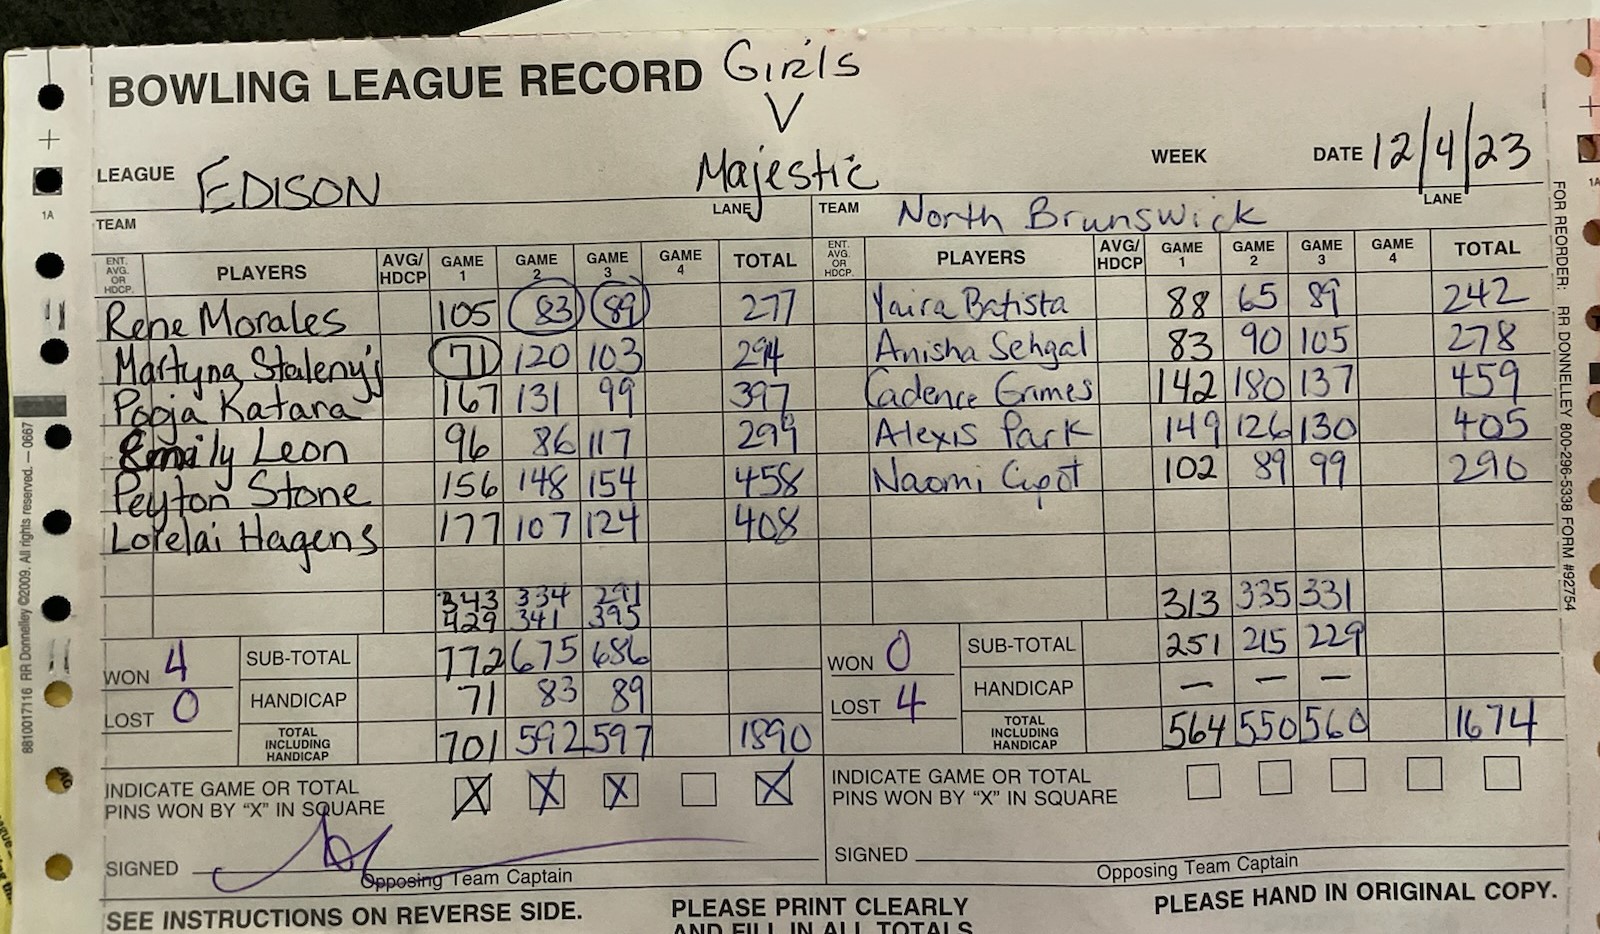 BOWLING LEAGUE RECORD Girls
V
LEAGUE EDISON Majestic WEEK DATE 12/4/23
TEAM LANE TEAM North Brunswick LANE
ENT. AVG. OR HDCP. PLAYERS AVG/HDCP GAME 1 GAME 2 GAME 3 GAME 4 TOTAL ENT. AVG. OR HDCP. PLAYERS AVG/HDCP GAME 1 GAME 2 GAME 3 GAME 4 TOTAL
Rene Morales 105 83 89 277 Yaira Batista 88 65 89 242
Martyna 71 120 103 294 Anisha Sehgal 83 90 105 278
Pooja Katara 167 131 99 397 Cadence Grimes 142 180 137 459
Emily Leon 96 86 117 299 Alexis Park 149 126 130 405
Peyton Stone 156 148 154 458 Naomi 102 89 99 290
Lorelai Hagens 177 107 124 408
343 334 291 313 335 331
429 341 395
WON 4 SUB-TOTAL 772 675 686 WON 0 SUB-TOTAL 251 215 229
LOST 0 HANDICAP 71 83 89 LOST 4 HANDICAP — — —
TOTAL INCLUDING HANDICAP 701 592 597 1890 TOTAL INCLUDING HANDICAP 564 550 560 1674
INDICATE GAME OR TOTAL PINS WON BY "X" IN SQUARE X X X X INDICATE GAME OR TOTAL PINS WON BY "X" IN SQUARE
SIGNED SIGNED
Opposing Team Captain Opposing Team Captain
SEE INSTRUCTIONS ON REVERSE SIDE. PLEASE PRINT CLEARLY PLEASE HAND IN ORIGINAL COPY.
AND FILL IN ALL TOTALS
1A
8810017116 RR Donnelley ©2009. All rights reserved. — 0667
FOR REORDER: RR DONNELLEY 800-296-5338 FORM #92754
1A